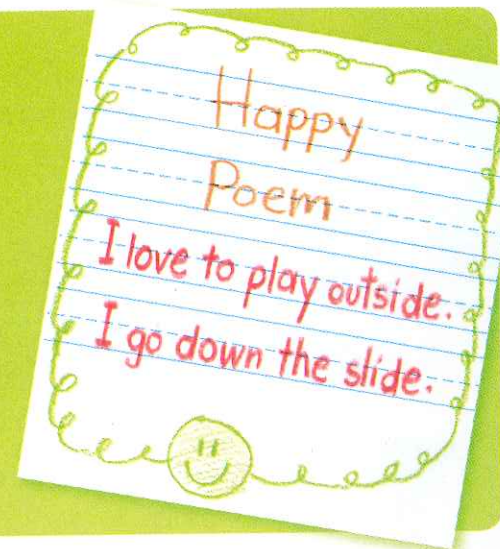 Happy
Poem
I love to play outside.
I go down the slide.